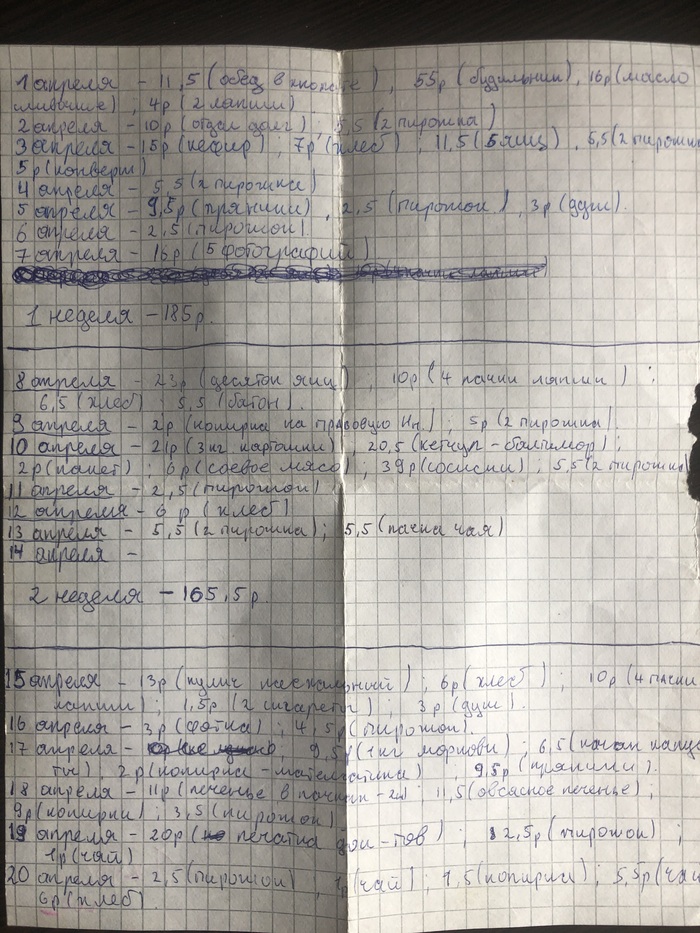 1 апреля – 11,5 (обед в ), 55р (будильник), 16р (масло
сливочное) ; 4р (2 лапши)
2 апреля – 10р (отдал долг) ; 5,5 (2 пирожка)
3 апреля – 15р (кефир) ; 7р (хлеб) ; 11,5 (5 яиц), 5,5 (2 пирожк
5р (конверт)
4 апреля – 5,5 (2 пирожка)
5 апреля – 9,5р (пряники), 2,5 (пирожок), 3р (душ).
6 апреля – 2,5 (пирожок)
7 апреля – 16р (5 фотографий)
1 неделя – 185р.
8 апреля – 23р (десяток яиц) ; 10р (4 пачки лапши) ;
6,5 (хлеб) ; 5,5 (батон).
9 апреля – 2р (копирка на ) ; 5р (2 пирожка).
10 апреля – 21р (3кг картошки), 20,5 (кетчуп - балтимор) ;
2р (пакет) ; 6р (соевое мясо) ; 39р (сосиски) ; 5,5 (2 пирожка)
11 апреля – 2,5 (пирожок)
12 апреля – 6р (хлеб)
13 апреля – 5,5 (2 пирожка) ; 5,5 (пачка чая)
14 апреля –
2 неделя – 165,5р
15 апреля – 13р (кулич пасхальный) ; 6р (хлеб) ; 10р (4 пачки
лапши) ; 1,5р (2 сигареты) ; 3р (душ).
16 апреля – 3р (фотка) ; 4,5р (пирожок).
17 апреля – 9,5р (1кг моркови) ; 6,5 (качан капус
ты), 2р (копирка - математика) ; 9,5р (пряники).
18 апреля – 11р (печенье в пачках - 2ш), 11,5 (овсяное печенье) ;
9р (копирки) ; 3,5 (пирожок)
19 апреля – 20р (печатка док-тов) ; 2,5р (пирожок) ;
1р (чай)
20 апреля – 2,5 (пирожок), 1р (чай) ; 1,5 (копирки) ; 5,5р (ча
6р (хлеб).